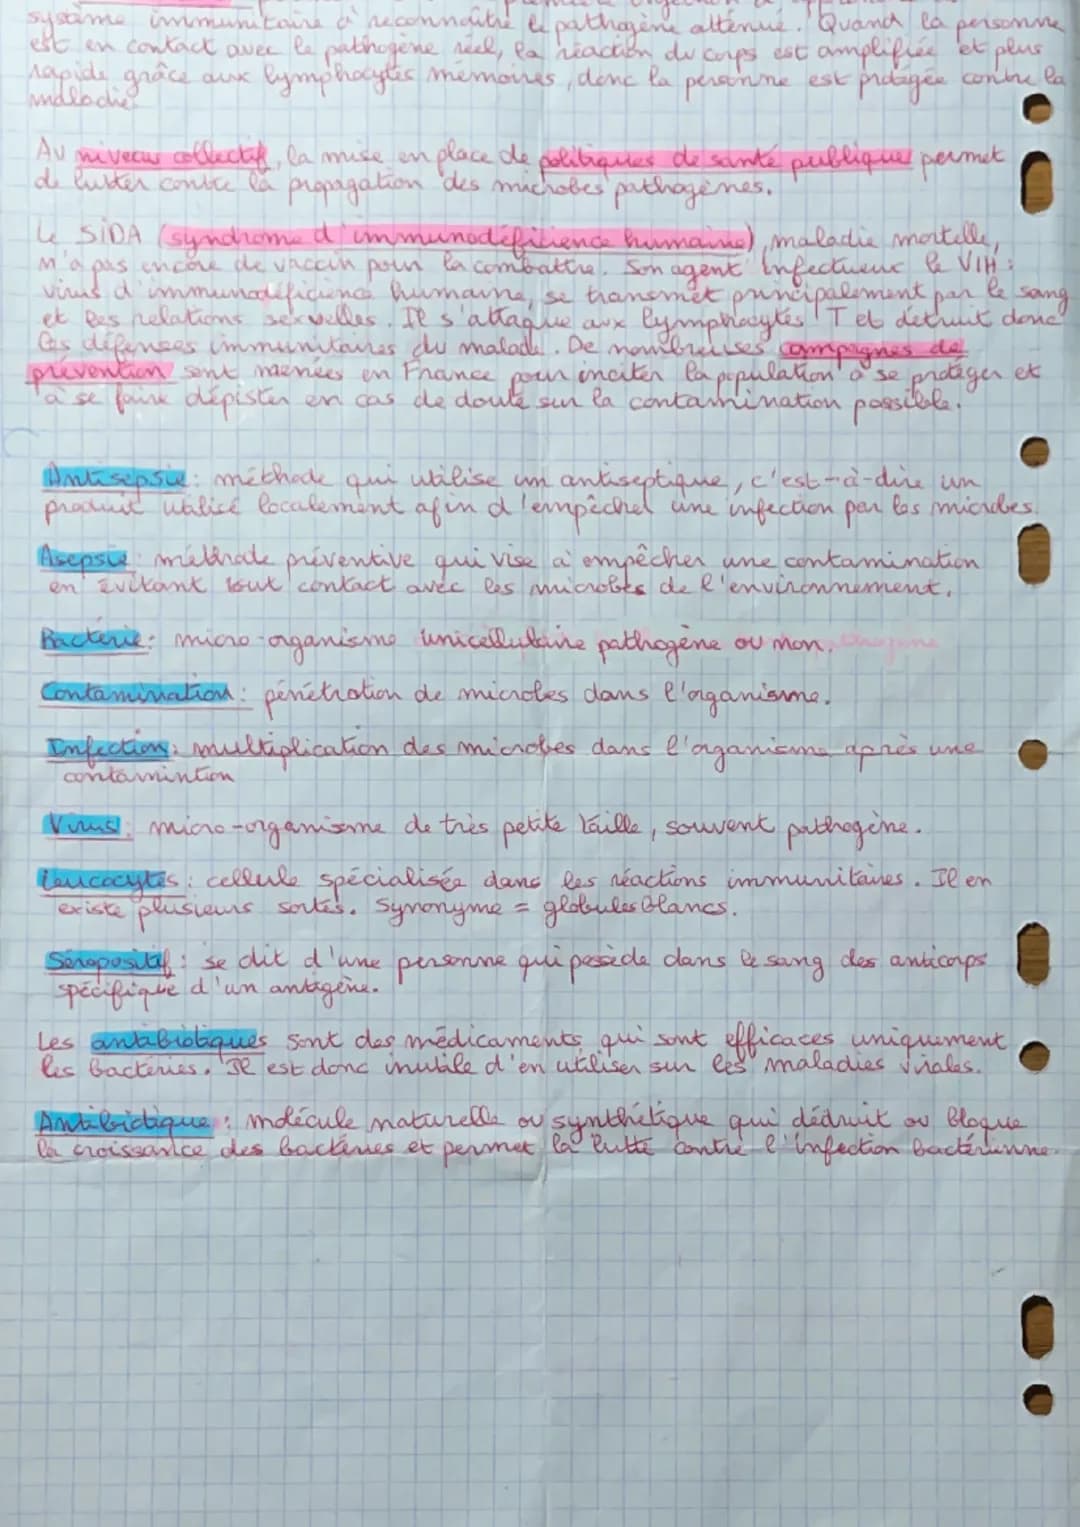 système immunitaire à reconnaître le pathogène atténué. Quand la personne
est en contact avec le pathogène réel, la réaction du corps est amplifiée et plus
rapide grâce aux lymphocytes mémoires, donc la personne est protégée contre la
maladie.
Au niveau collectif, la mise en place de politiques de santé publique permet
de lutter contre la propagation des microbes pathogènes.
Le SIDA (syndrome d'immunodéficience humaine), maladie mortelle,
n'a pas encore de vaccin pour la combattre. Son agent infectueux le VIH :
virus d'immunodéficience humaine, se transmet principalement par le sang
et les relations sexuelles. Il s'attaque aux lymphocytes T et détruit donc
les défenses immunitaires du malade. De nombreuses campagnes de
prévention sont menées en France pour inciter la population à se protéger et
à se faire dépister en cas de doute sur la contamination possible.
Antisepsie : méthode qui utilise un antiseptique, c'est-à-dire un
produit utilisé localement afin d'empêcher une infection par les microbes.
Asepsie : méthode préventive qui vise à empêcher une contamination
en évitant tout contact avec les microbes de l'environnement.
Bactérie : micro-organisme unicellulaire pathogène ou non.
Contamination : pénétration de microbes dans l'organisme.
Infection : multiplication des microbes dans l'organisme après une
contamintion
Virus : micro-organisme de très petite taille, souvent pathogène.
Leucocytes : cellule spécialisée dans les réactions immunitaires. Il en
existe plusieurs sortes. Synonyme = globules blancs.
Séropositif : se dit d'une personne qui possède dans le sang des anticorps
spécifique d'un antigène.
Les antibiotiques sont des médicaments qui sont efficaces uniquement
les bactéries. Il est donc inutile d'en utiliser sur les maladies virales.
Antibiotique : molécule naturelle ou synthétique qui dédruit ou bloque
la croissance des bactéries et permet la lutte contre l'infection bactérienne.